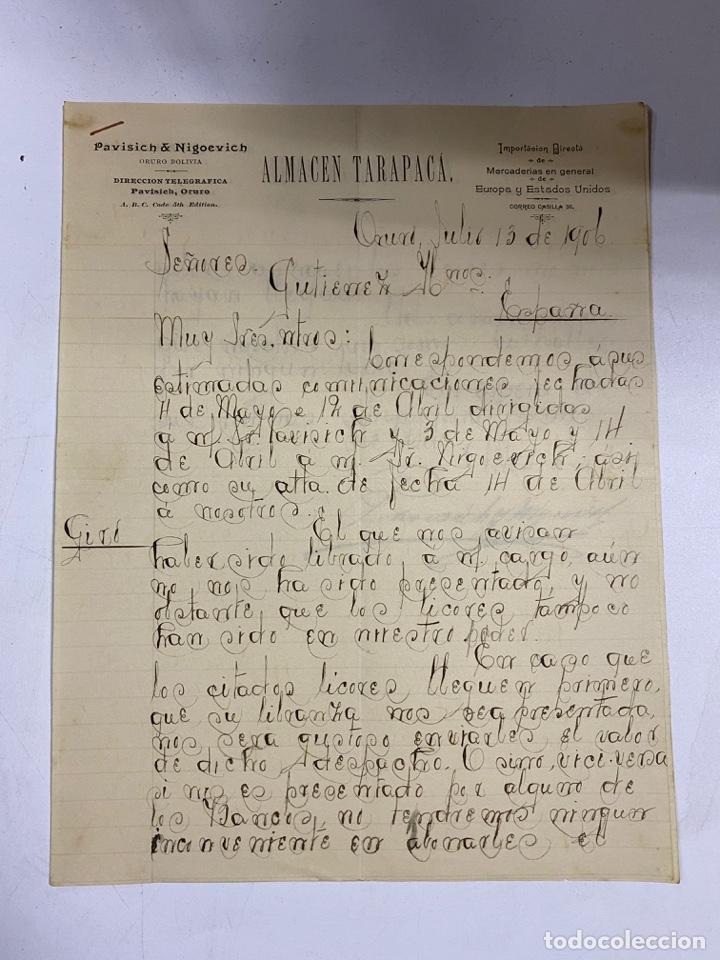 Pavisich & Nigoevich
ORURO BOLIVIA
DIRECCION TELEGRAFICA
Pavisich, Oruro
A. B. C. Code 5th Edition.
ALMACEN TARAPACÁ.
Importación Directa
de
Mercaderias en general
de
Europa y Estados Unidos
CORREO CASILLA 36.
Oruro, Julio 13 de 1906
Señores.
Gutierrez Hnos.
España.
Muy Sres. ntros:
Correspondemos á sus
estimadas comunicaciones fechadas
4 de Mayo e 12 de Abril dirigidas
a n/ Sr. Pavisich y 3 de Mayo y 14
de Abril á n/ Sr. Nigoevich, asi
como su atta. de fecha 14 de Abril
á nosotros.
Giro
El que nos avisan
haber sido librado á n/ cargo, aún
no nos ha sido presentado, y no
obstante que los licores tampoco
han sido en nuestro poder.
En caso que
los citados licores lleguen primero,
que su libranza nos sea presentada,
nos sera gustoso enviarles el valor
de dicho despacho. O sino, vice-versa
si nos es presentado por alguno de
los Bancos, no tendremos ningun
inconveniente en abonarles el
todocoleccion.net